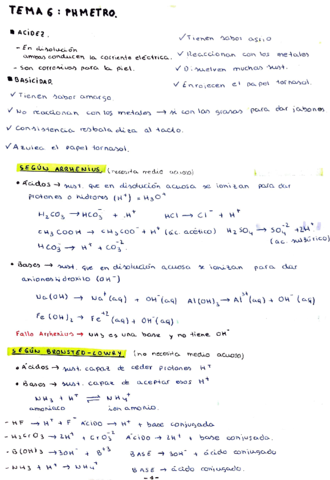 TEMA 6: PHMETRO.
■ ACIDEZ.
- En disolución
ambas conducen la corriente eléctrica.
- Son corrosivos para la piel.
✓ Tienen sabor agrio
✓ Reaccionan con los metales
✓ Disuelven muchas sust.
✓ Enrojecen el papel tornasol.
■ BASICIDAD
✓ Tienen sabor amargo.
✓ No reaccionan con los metales → si con las grasas para dar jabones
✓ Consistencia resbaladiza al tacto.
✓ Azulea el papel tornasol.
SEGÚN ARRHENIUS (necesita medio acuoso)
• Ácidos → sust. que en disolución acuosa se ionizan para dar
protones o hidrones (H⁺) = H₃O⁺
H₂CO₃ → HCO₃⁻ + H⁺ HCl → Cl⁻ + H⁺
CH₃COOH → CH₃COO⁻ + H⁺ (ác. acético) H₂SO₄ → SO₄⁻² + 2H⁺
HCO₃⁻ → H⁺ + CO₃⁻² (ac. sulfúrico)
• Bases → sust. que en disolución acuosa se ionizan para dar
aniones hidroxilo (OH⁻)
Na(OH) → Na⁺(aq) + OH⁻(aq) Al(OH)₃ → Al³⁺(aq) + OH⁻(aq)
Fe(OH)₂ → Fe⁺²(aq) + OH⁻(aq).
Falla Arrhenius → NH₃ es una base y no tiene OH⁻
SEGÚN BRONSTED-LOWRY (no necesita medio acuoso)
• Ácidos → sust. capaz de ceder protones H⁺
• Bases → sust. capaz de aceptar esos H⁺
NH₃ + H⁺ ⇌ NH₄⁺
amoniaco ion amonio.
- HF → H⁺ + F⁻ ÁCIDO → H⁺ + base conjugada
- H₂CrO₃ → 2H⁺ + CrO₃⁻² ÁCIDO → 2H⁺ + base conjugada.
- B(OH)₃ → 3OH⁻ + B⁺³ BASE → 3OH⁻ + ácido conjugado
- NH₃ + H⁺ → NH₄⁺ BASE → ácido conjugado.
-1-